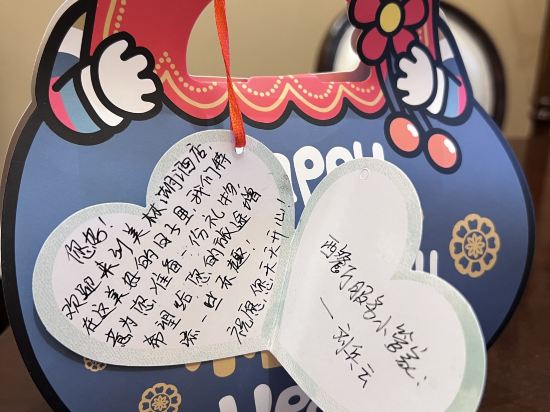 您好!
欢迎来到美林湖酒店!
在这美好的日子里,我们特
意为您准备一份礼物
希望给您的旅途增
添一些乐趣!
祝愿您天天开心!
西餐厅服务小管家!
— 刘兵云
Happy